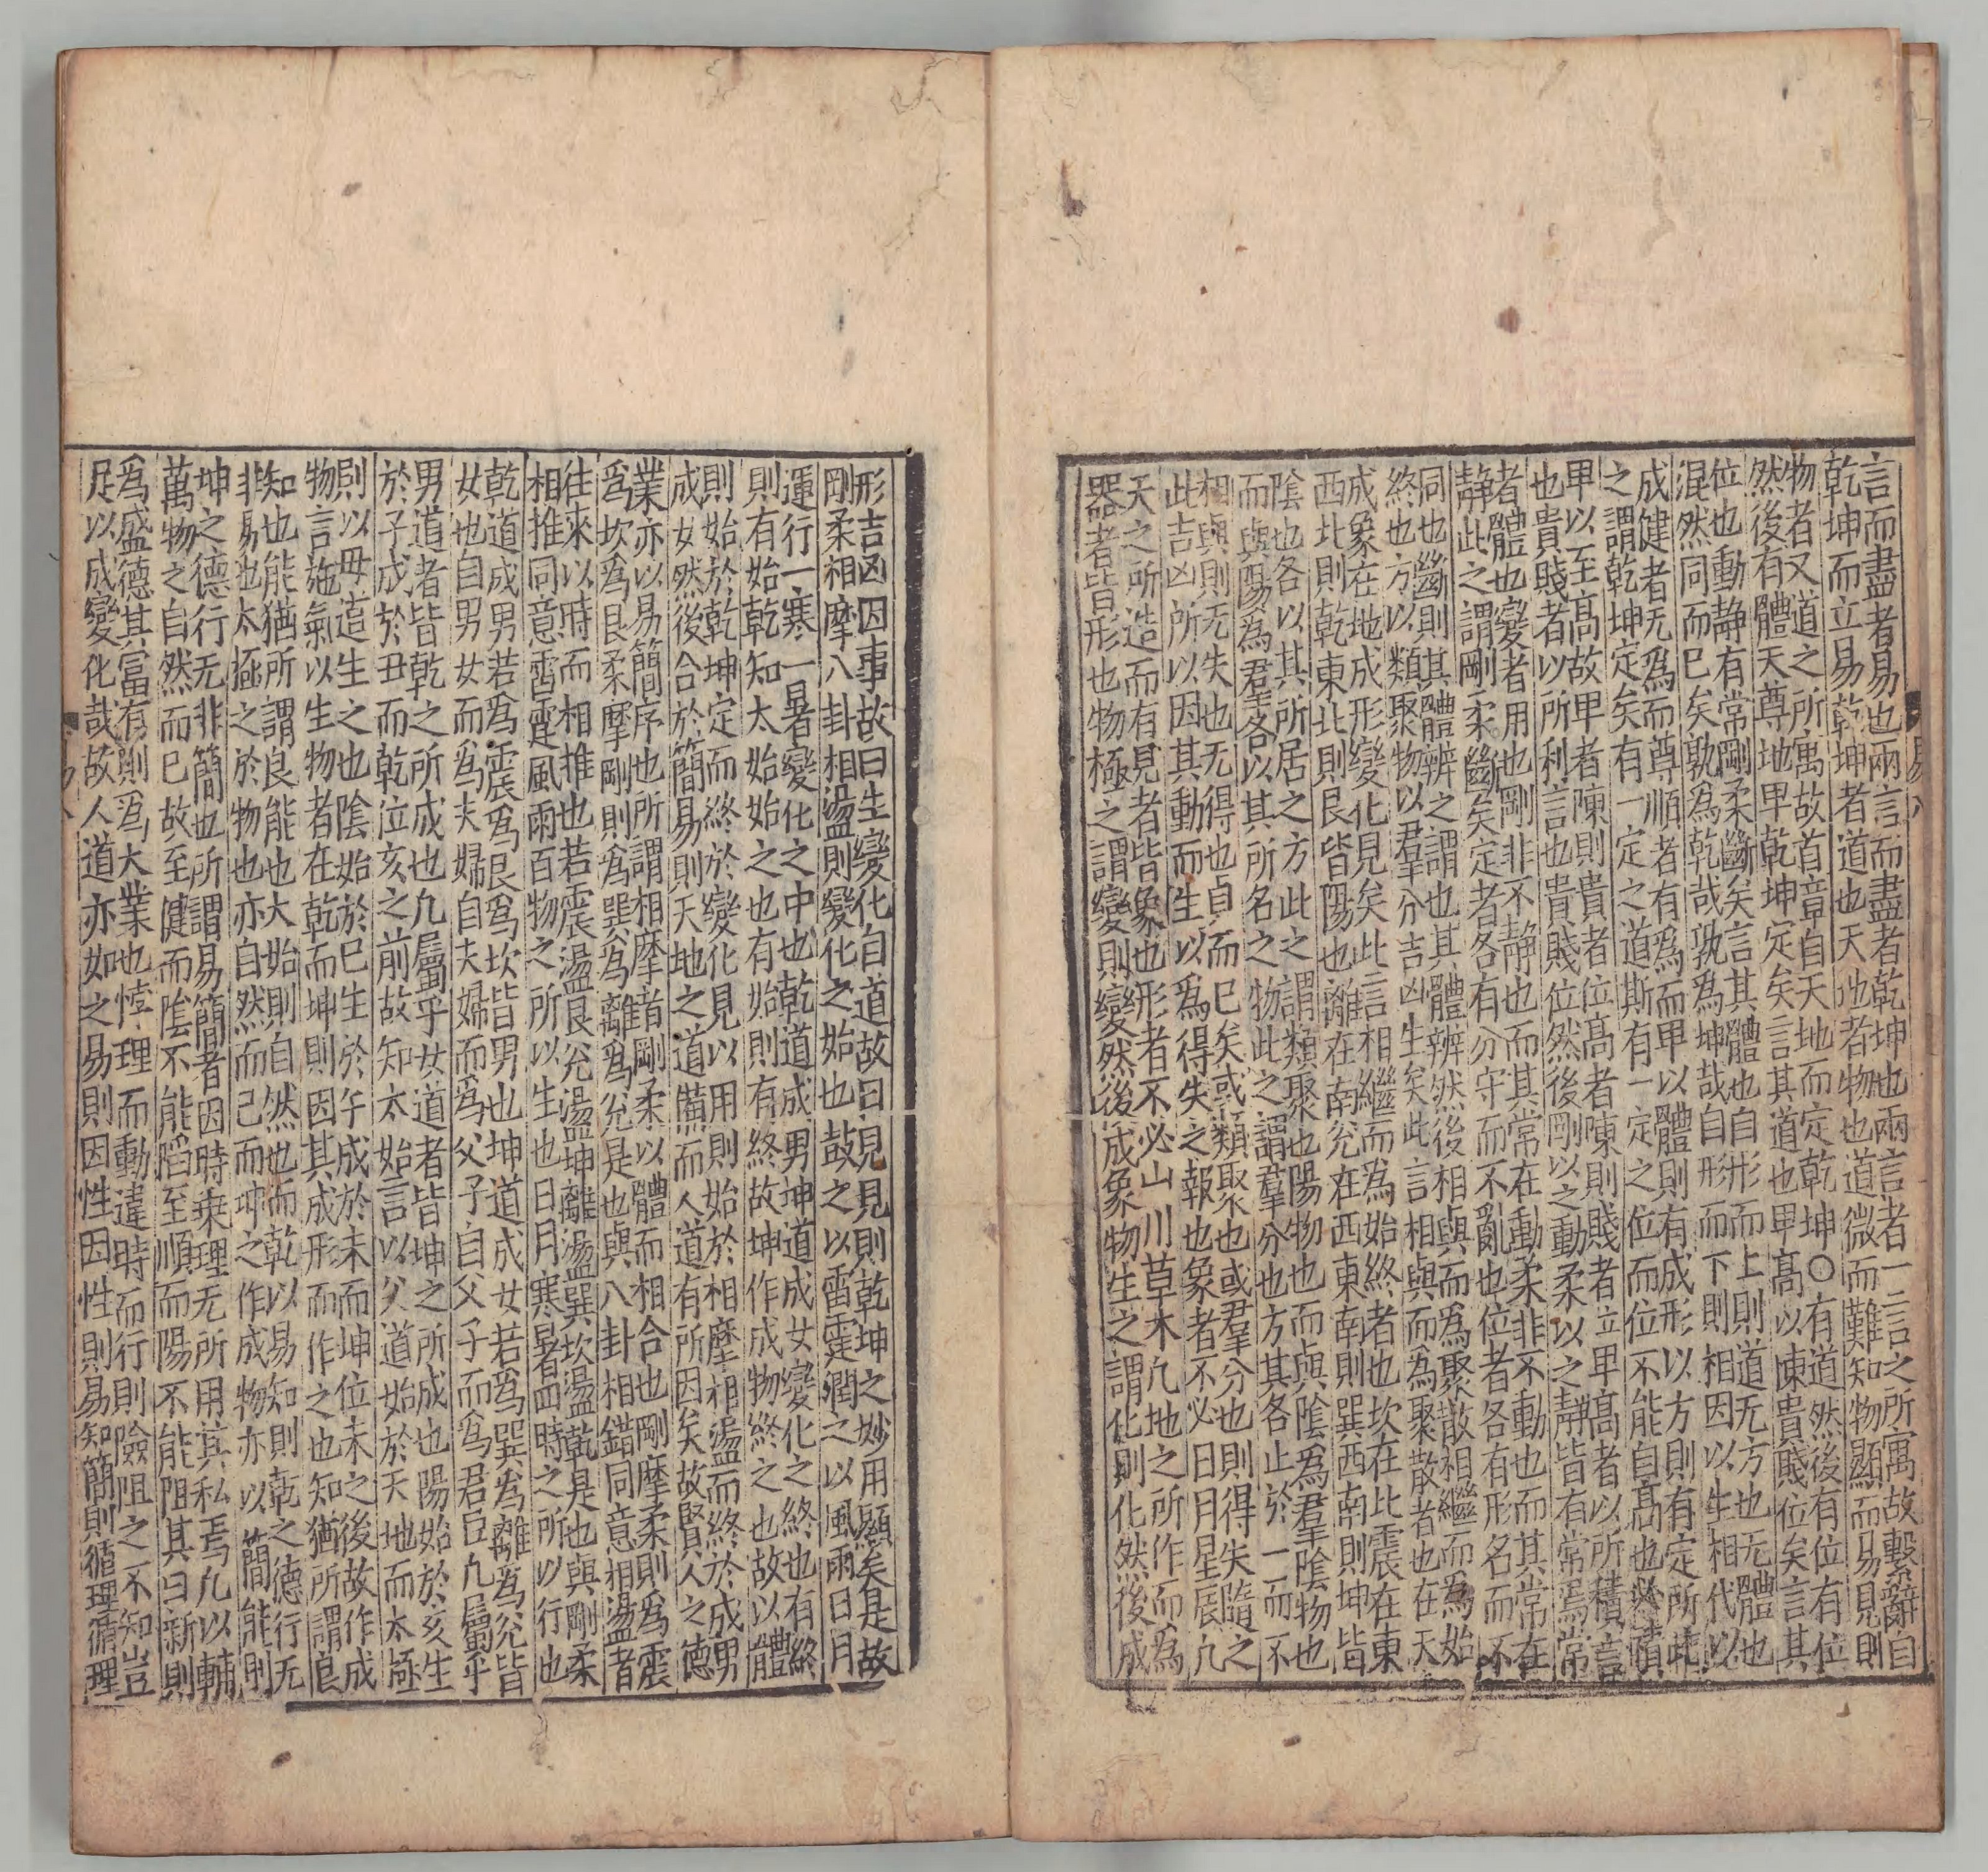 言而盡者易也兩言而盡者乾坤也兩言者一言之所寓故繫辭自
乾坤而立易乾坤者道也天地者物也道微而難知物顯而易見則
物者又道之所寓故首章自天地而定乾坤○有道然後有位有位
然後有體天尊地卑乾坤定矣言其道也卑高以陳貴賤位矣言其
位也動靜有常剛柔斷矣言其體也自形而上則道无方也无體也
混然同而已矣孰為乾哉孰為坤哉自形而下則相因以生相代以
成健者无為而尊順者有為而卑以體則有成形以方則有定所此
之謂乾坤定矣有一定之道斯有一定之位而位不能自高也必積
卑以至高故卑者陳則貴者位高者陳則賤者立卑高者以所積言
也貴賤者以所利言也貴賤位然後剛以之動柔以之靜皆有常焉常
者體也變者用也剛非不靜也而其常在動柔非不動也而其常在
静此之謂剛柔斷矣定者各有分守而不亂也位者各有形名而不
同也斷則其體辨之謂也其體辨然後相與而為聚散相繼而為始
終也方以類聚物以羣分吉凶生矣此言相與而為聚散者也在天
成象在地成形變化見矣此言相繼而為始終者也坎在北震在東
西北則乾東北則艮皆陽也離在南兌在西東南則巽西南則坤皆
陰也各以其所居之方此之謂類聚也陽物也而與陰為羣陰物也
而與陽為羣各以其所名之物此之謂羣分也方其各止於一而不
相與則无失也无得也貞而已矣或類聚也或羣分也則得失隨之
此吉凶所以因其動而生以為得失之報也象者不必日月星辰凡
天之所造而有見者皆象也形者不必山川草木凡地之所作而為
器者皆形也物極之謂變則變然後成象物生之謂化則化然後成
形吉凶因事故曰生變化自道故曰見見則乾坤之妙用顯矣是故
剛柔相摩八卦相盪則變化之始也鼓之以雷霆潤之以風雨日月
運行一寒一暑變化之中也乾道成男坤道成女變化之終也有終
則有始乾知太始始之也有始則有終故坤作成物終之也故以體
則始於乾坤定而終於變化見以用則始於相摩相盪而終於成男
成女然後合於簡易則天地之道備而人道有所因矣故賢人之德
業亦以易簡序也所謂相摩者剛柔以體而相合也剛摩柔則為震
為坎為艮柔摩剛則為巽為離為兌是也與八卦相錯同意相盪者
往來以時而相推也若震盪艮兌盪坤離盪巽坎盪乾是也與剛柔
相推同意雷霆風雨百物之所以生也日月寒暑四時之所以行也
乾道成男若為震為艮為坎皆男也坤道成女若為巽為離為兌皆
女也自男女而為夫婦自夫婦而為父子自父子而為君臣凡屬乎
男道者皆乾之所成也凡屬乎女道者皆坤之所成也陽始於亥生
於子成於丑而乾位亥之前故知太始言以父道始於天地而太極
則以母道生之也陰始於巳生於午成於未而坤位未之後故作成
物言施氣以生物者在乾而坤則因其成形而作之也知猶所謂良
知也能猶所謂良能也大始則自然也而乾以易知則乾之德行无
非易也太極之於物也亦自然而已而坤之作成物亦以簡能則
坤之德行无非簡也所謂易簡者因時乘理无所用其私焉凡以輔
萬物之自然而已故至健而陰不能陷至順而陽不能阻其日新則
為盛德其富有則為大業也悖理而動違時而行則險阻之不知豈
足以成變化哉故人道亦如之易則因性因性則易知簡則循理循理